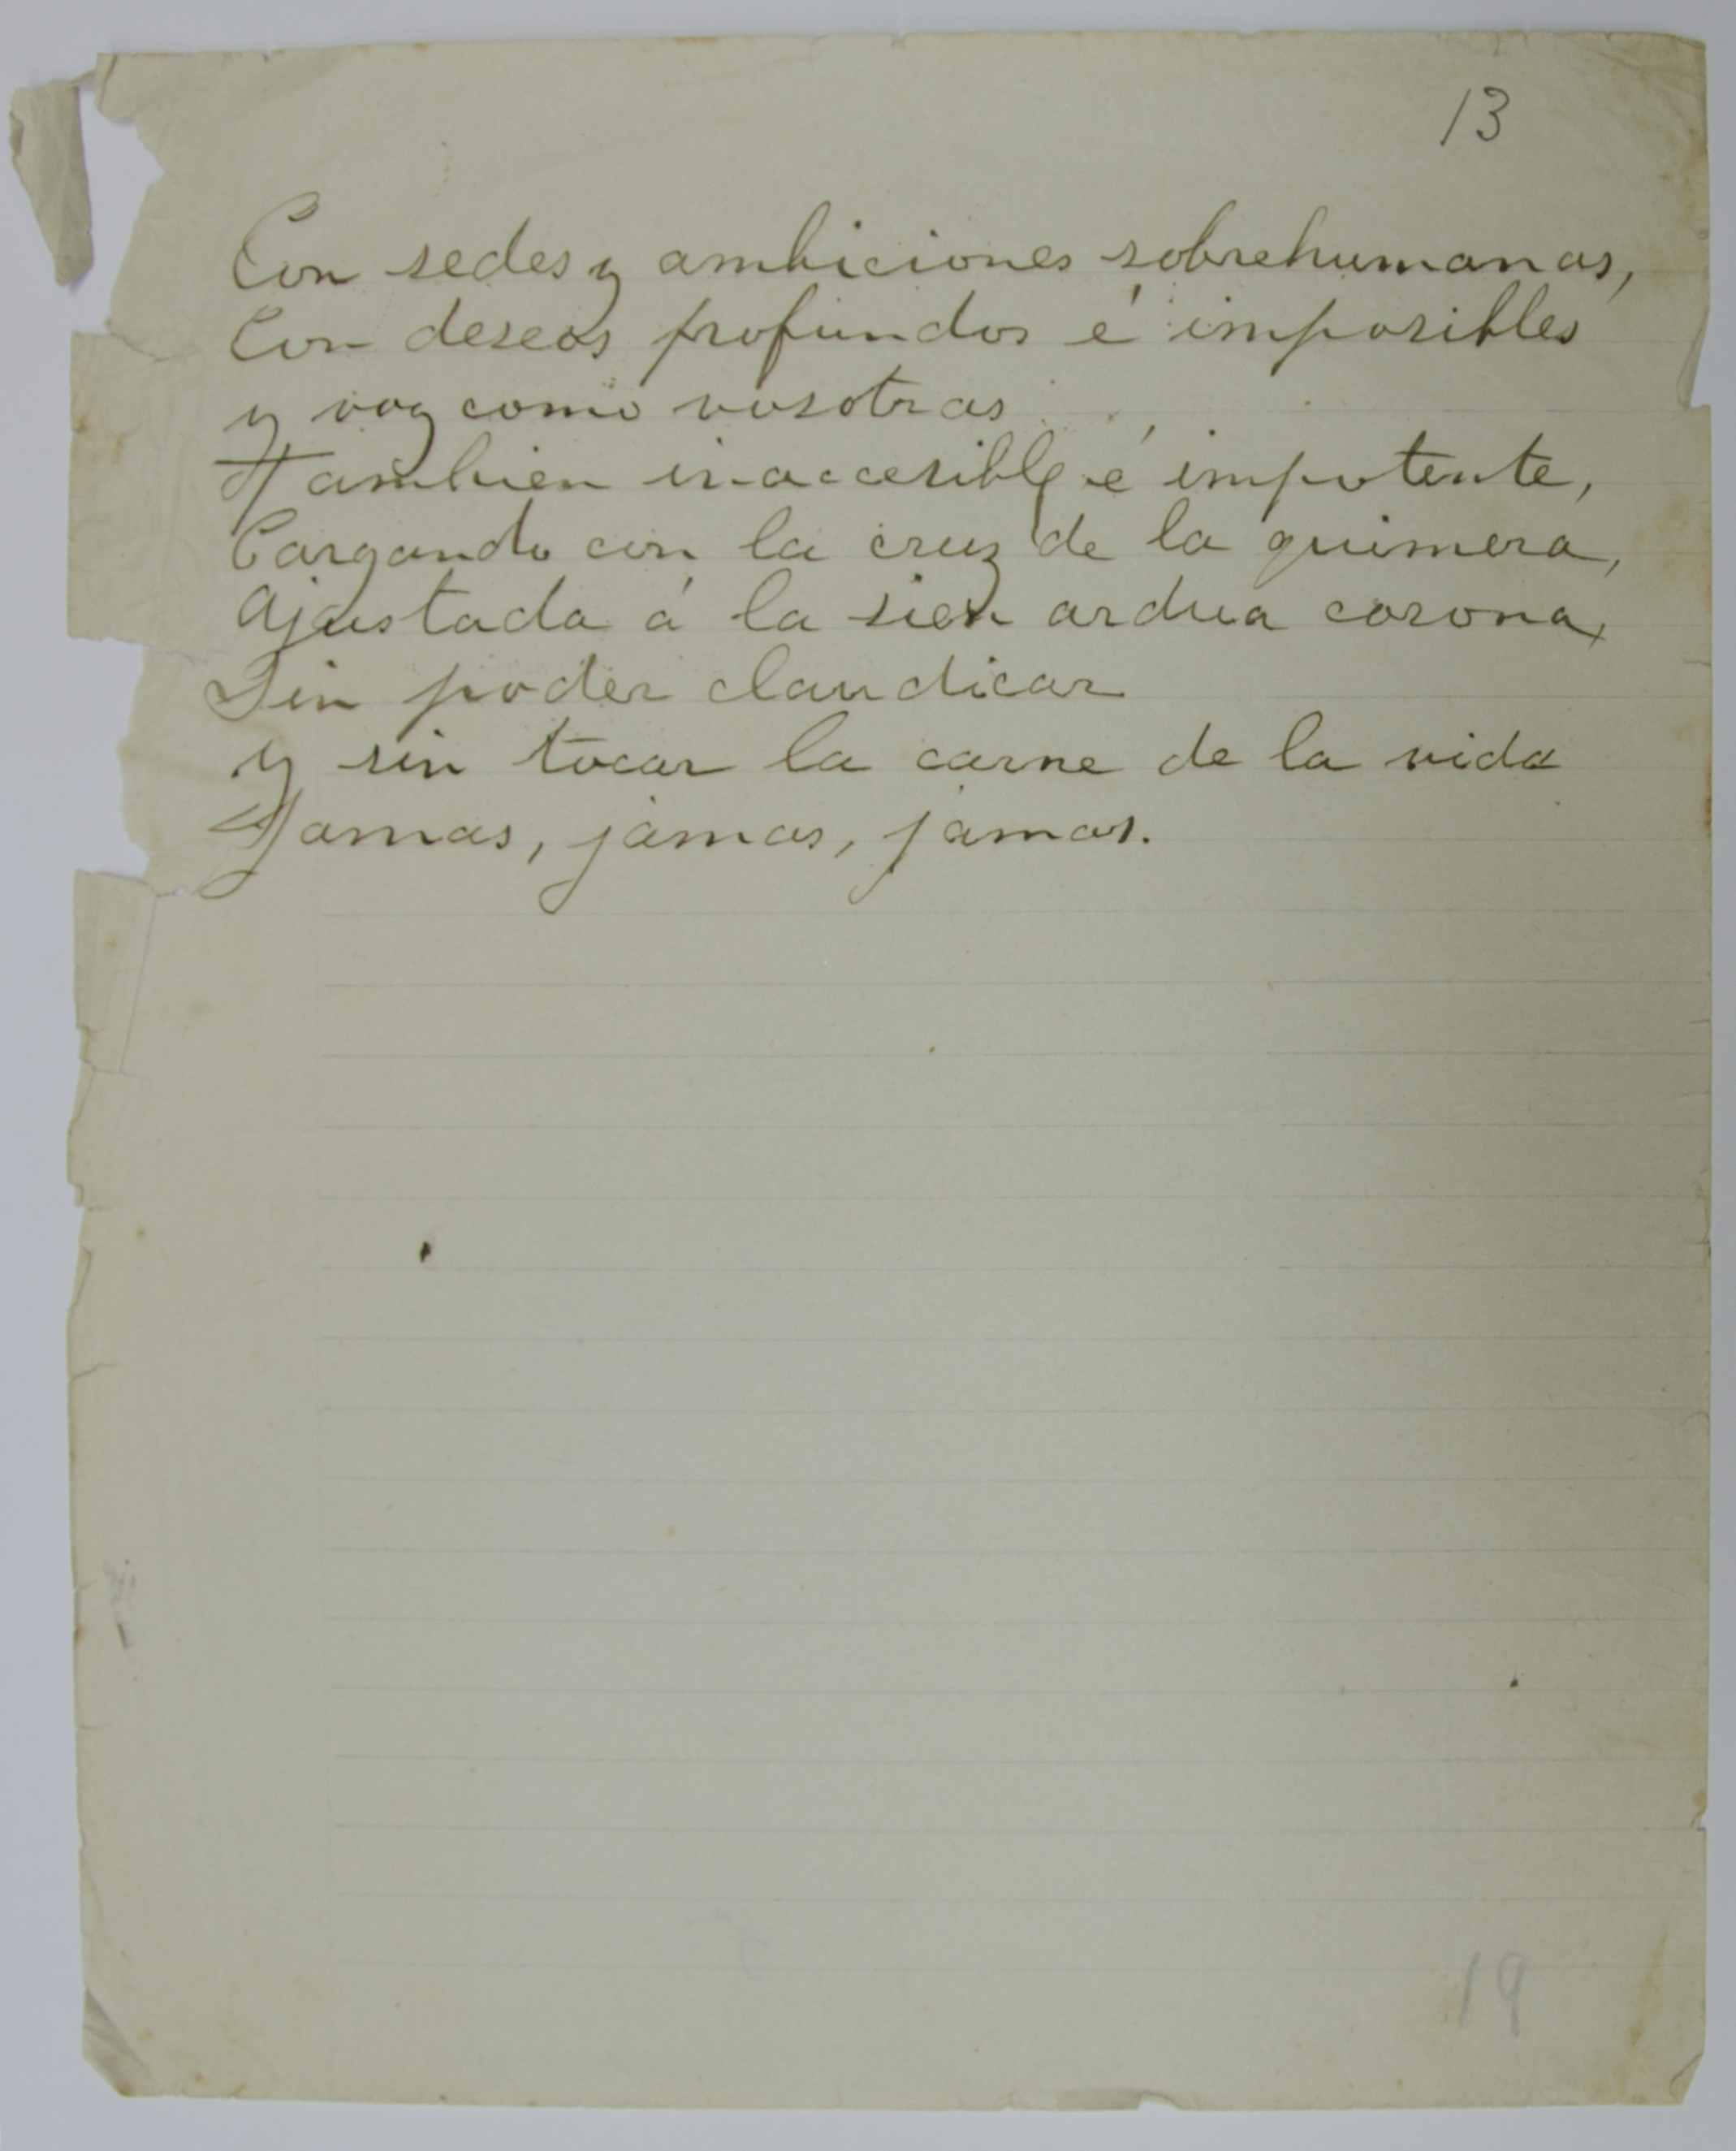 13
Con sedes y ambiciones sobrehumanas,
Con deseos profundos é imposibles
y voy como vosotras
Tambien inaccesible é impotente,
Cargando con la cruz de la quimera,
Ajustada á la sien ardua corona,
Sin poder claudicar
y sin tocar la carne de la vida
Jamas, jamas, jamas.
19